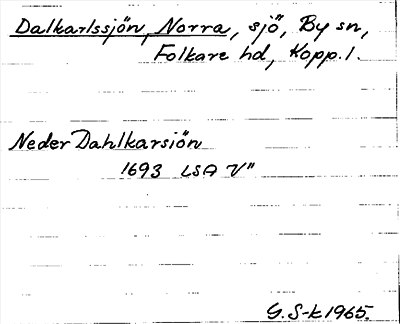 Dalkarlssjön, Norra, sjö, By sn,
Folkare hd, Kopp. l.
Neder Dahlkarsiön
1693 LSA V"
G. S-k 1965.